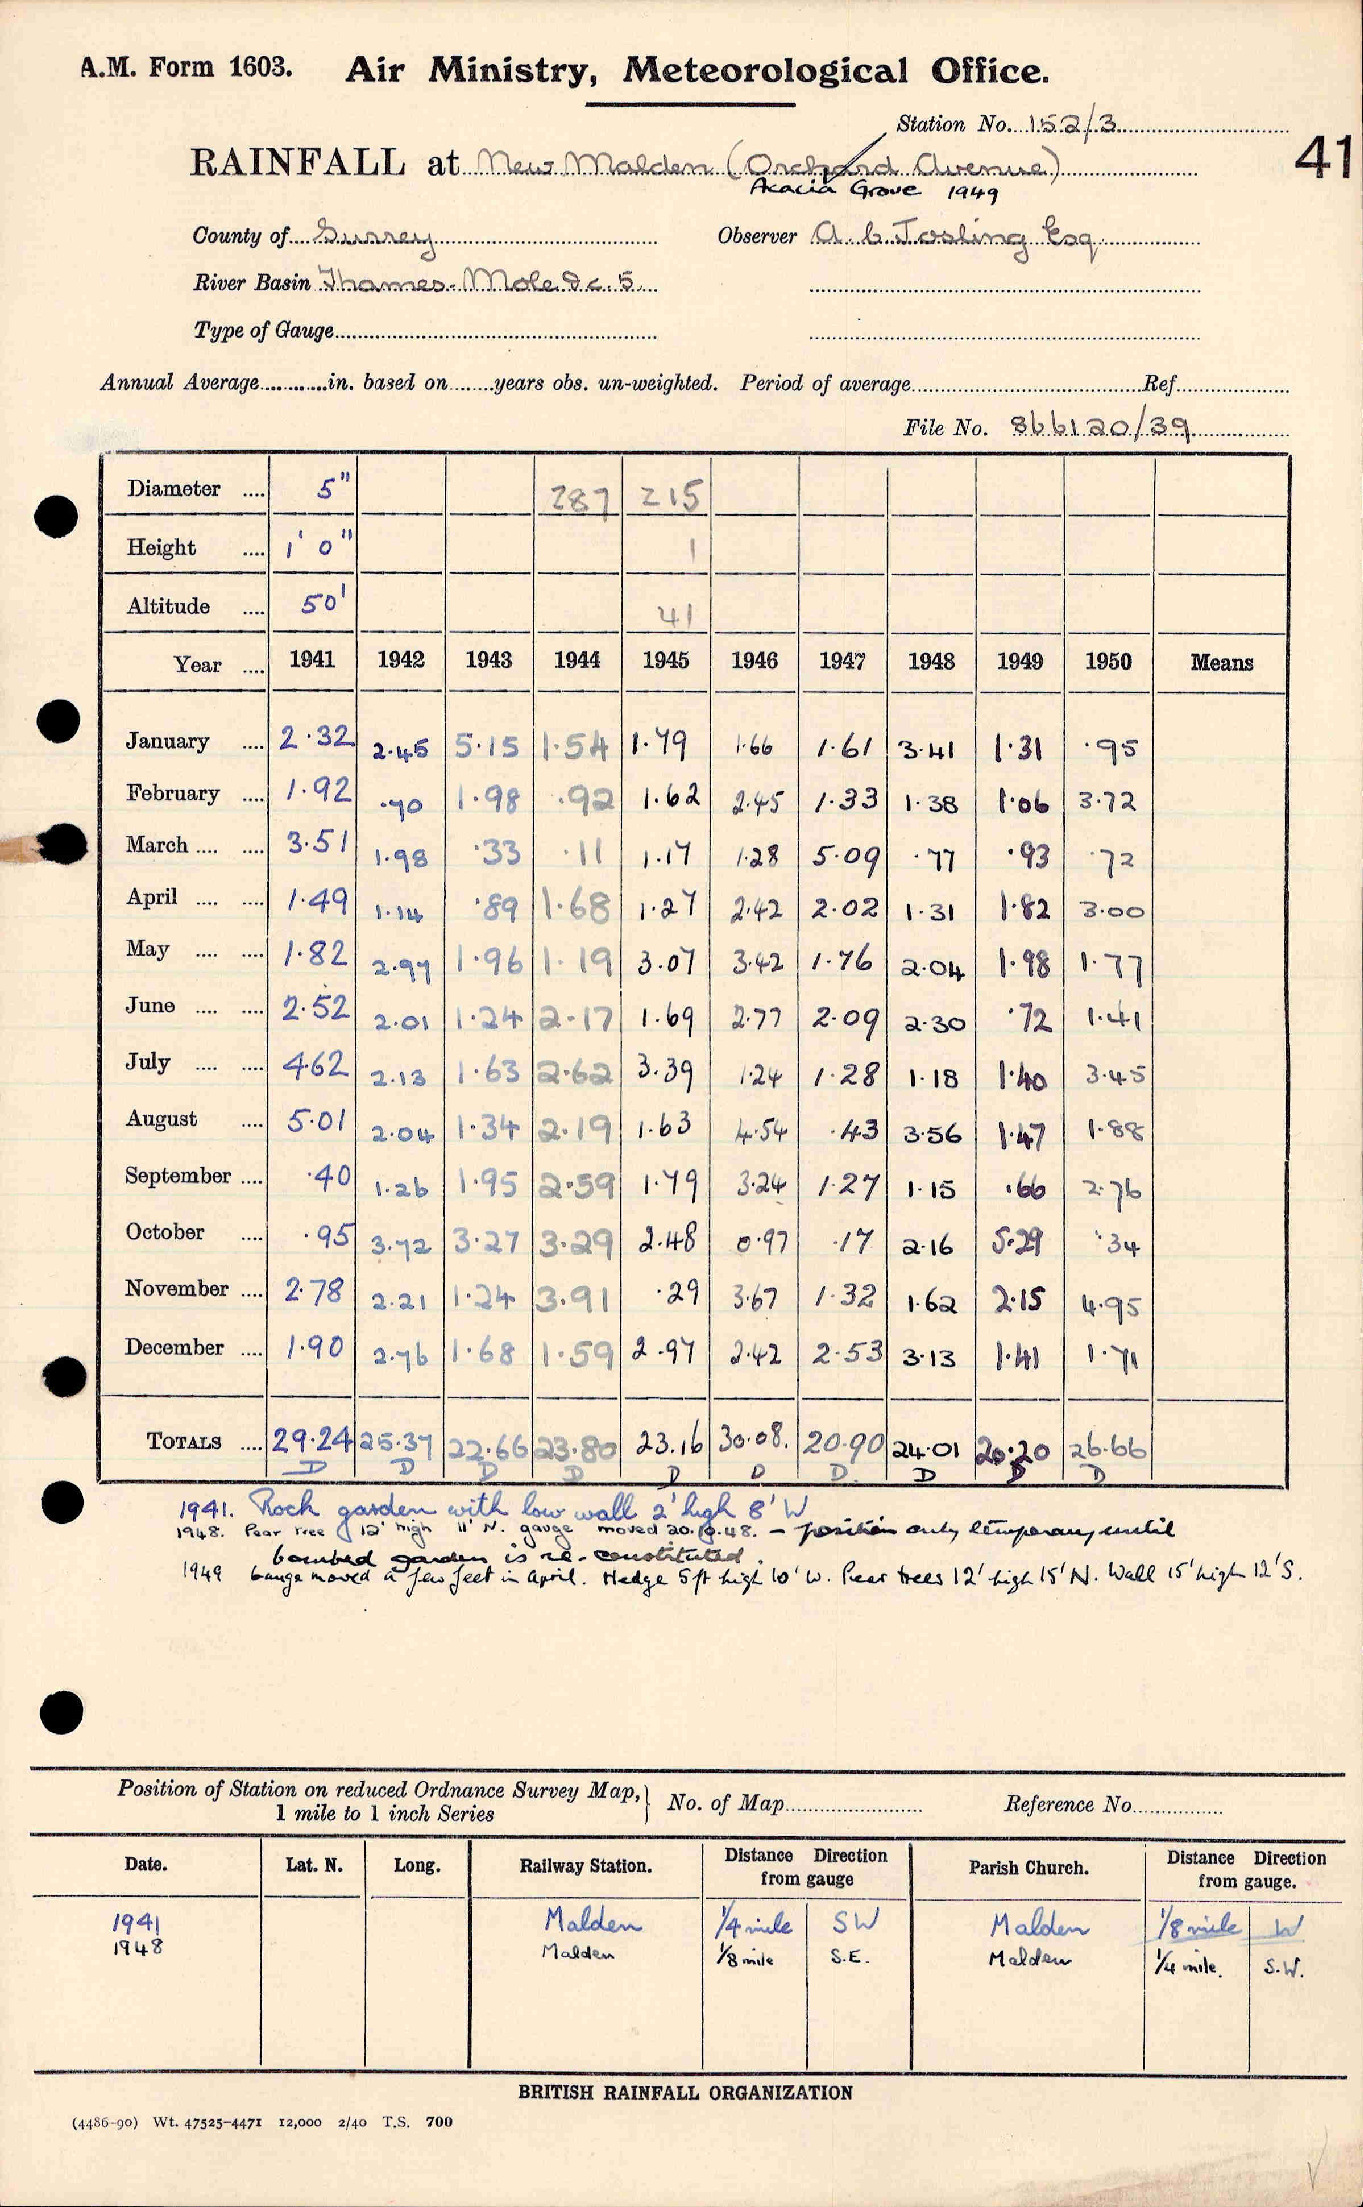 A.M. Form 1603. Air Ministry, Meteorological Office.
Station No. 152/3
RAINFALL at New Malden (Orchard Avenue) 41
Acacia Grove 1949
County of Surrey Observer A. C. Josling Esq.
River Basin Thames-Mole &c. 5
Type of Gauge
Annual Average in. based on years obs. un-weighted. Period of average Ref
File No. 866120/39
Diameter 5" 287 215
Height 1' 0" 1
Altitude 50' 41
Year 1941 1942 1943 1944 1945 1946 1947 1948 1949 1950 Means
January 2.32 2.45 5.15 1.54 1.79 1.66 1.61 3.41 1.31 .95
February 1.92 .70 1.98 .92 1.62 2.45 1.33 1.38 1.06 3.72
March 3.51 1.98 .33 .11 1.17 1.28 5.09 .77 .93 .72
April 1.49 1.14 .89 1.68 1.27 2.42 2.02 1.31 1.82 3.00
May 1.82 2.97 1.96 1.19 3.07 3.42 1.76 2.04 1.98 1.77
June 2.52 2.01 1.24 2.17 1.69 2.77 2.09 2.30 .72 1.41
July 4.62 2.13 1.63 2.62 3.39 1.24 1.28 1.18 1.40 3.45
August 5.01 2.04 1.34 2.19 1.63 4.54 .43 3.56 1.47 1.88
September .40 1.26 1.95 2.59 1.79 3.24 1.27 1.15 .66 2.76
October .95 3.72 3.27 3.29 2.48 0.97 .17 2.16 5.29 .34
November 2.78 2.21 1.24 3.91 .29 3.67 1.32 1.62 2.15 4.95
December 1.90 2.76 1.68 1.59 2.97 2.42 2.53 3.13 1.41 1.71
TOTALS 29.24 25.37 22.66 23.80 23.16 30.08. 20.90 24.01 20.20 26.66
D D D D D D D. D D D
1941. Rock garden with low wall 2' high 8' W
1948. Pear tree 12' high 11' N. gauge moved 20.9.48. – position only temporary until
bombed garden is re-constituted.
1949 Gauge moved a few feet in April. Hedge 5 ft high 10' W. Pear trees 12' high 15' N. Wall 15' high 12' S.
Position of Station on reduced Ordnance Survey Map,
1 mile to 1 inch Series No. of Map Reference No
Date. Lat. N. Long. Railway Station. Distance Direction from gauge Parish Church. Distance Direction from gauge.
1941 Malden 1/4 mile SW Malden 1/8 mile W
1948 Malden 1/8 mile S.E. Malden 1/4 mile. S.W.
BRITISH RAINFALL ORGANIZATION
(4486-90) Wt. 47525-4471 12,000 2/40 T.S. 700